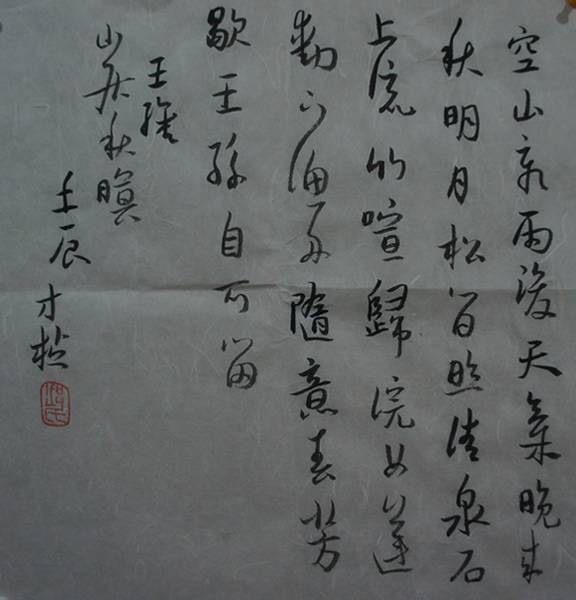 空山新雨後天氣晚來
秋明月松間照清泉石
上流竹喧歸浣女蓮
動下漁舟隨意春芳
歇王孫自可留
王維
山居秋暝
壬辰才